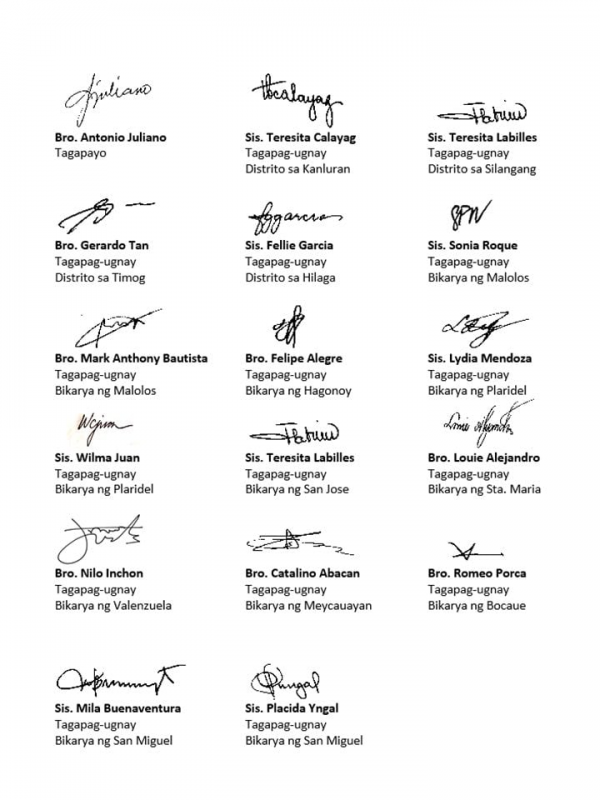 Bro. Antonio Juliano
Tagapayo
Sis. Teresita Calayag
Tagapag-ugnay
Distrito sa Kanluran
Sis. Teresita Labilles
Tagapag-ugnay
Distrito sa Silangang
Bro. Gerardo Tan
Tagapag-ugnay
Distrito sa Timog
Sis. Fellie Garcia
Tagapag-ugnay
Distrito sa Hilaga
Sis. Sonia Roque
Tagapag-ugnay
Bikarya ng Malolos
Bro. Mark Anthony Bautista
Tagapag-ugnay
Bikarya ng Malolos
Bro. Felipe Alegre
Tagapag-ugnay
Bikarya ng Hagonoy
Sis. Lydia Mendoza
Tagapag-ugnay
Bikarya ng Plaridel
Sis. Wilma Juan
Tagapag-ugnay
Bikarya ng Plaridel
Sis. Teresita Labilles
Tagapag-ugnay
Bikarya ng San Jose
Bro. Louie Alejandro
Tagapag-ugnay
Bikarya ng Sta. Maria
Bro. Nilo Inchon
Tagapag-ugnay
Bikarya ng Valenzuela
Bro. Catalino Abacan
Tagapag-ugnay
Bikarya ng Meycauayan
Bro. Romeo Porca
Tagapag-ugnay
Bikarya ng Bocaue
Sis. Mila Buenaventura
Tagapag-ugnay
Bikarya ng San Miguel
Sis. Placida Yngal
Tagapag-ugnay
Bikarya ng San Miguel